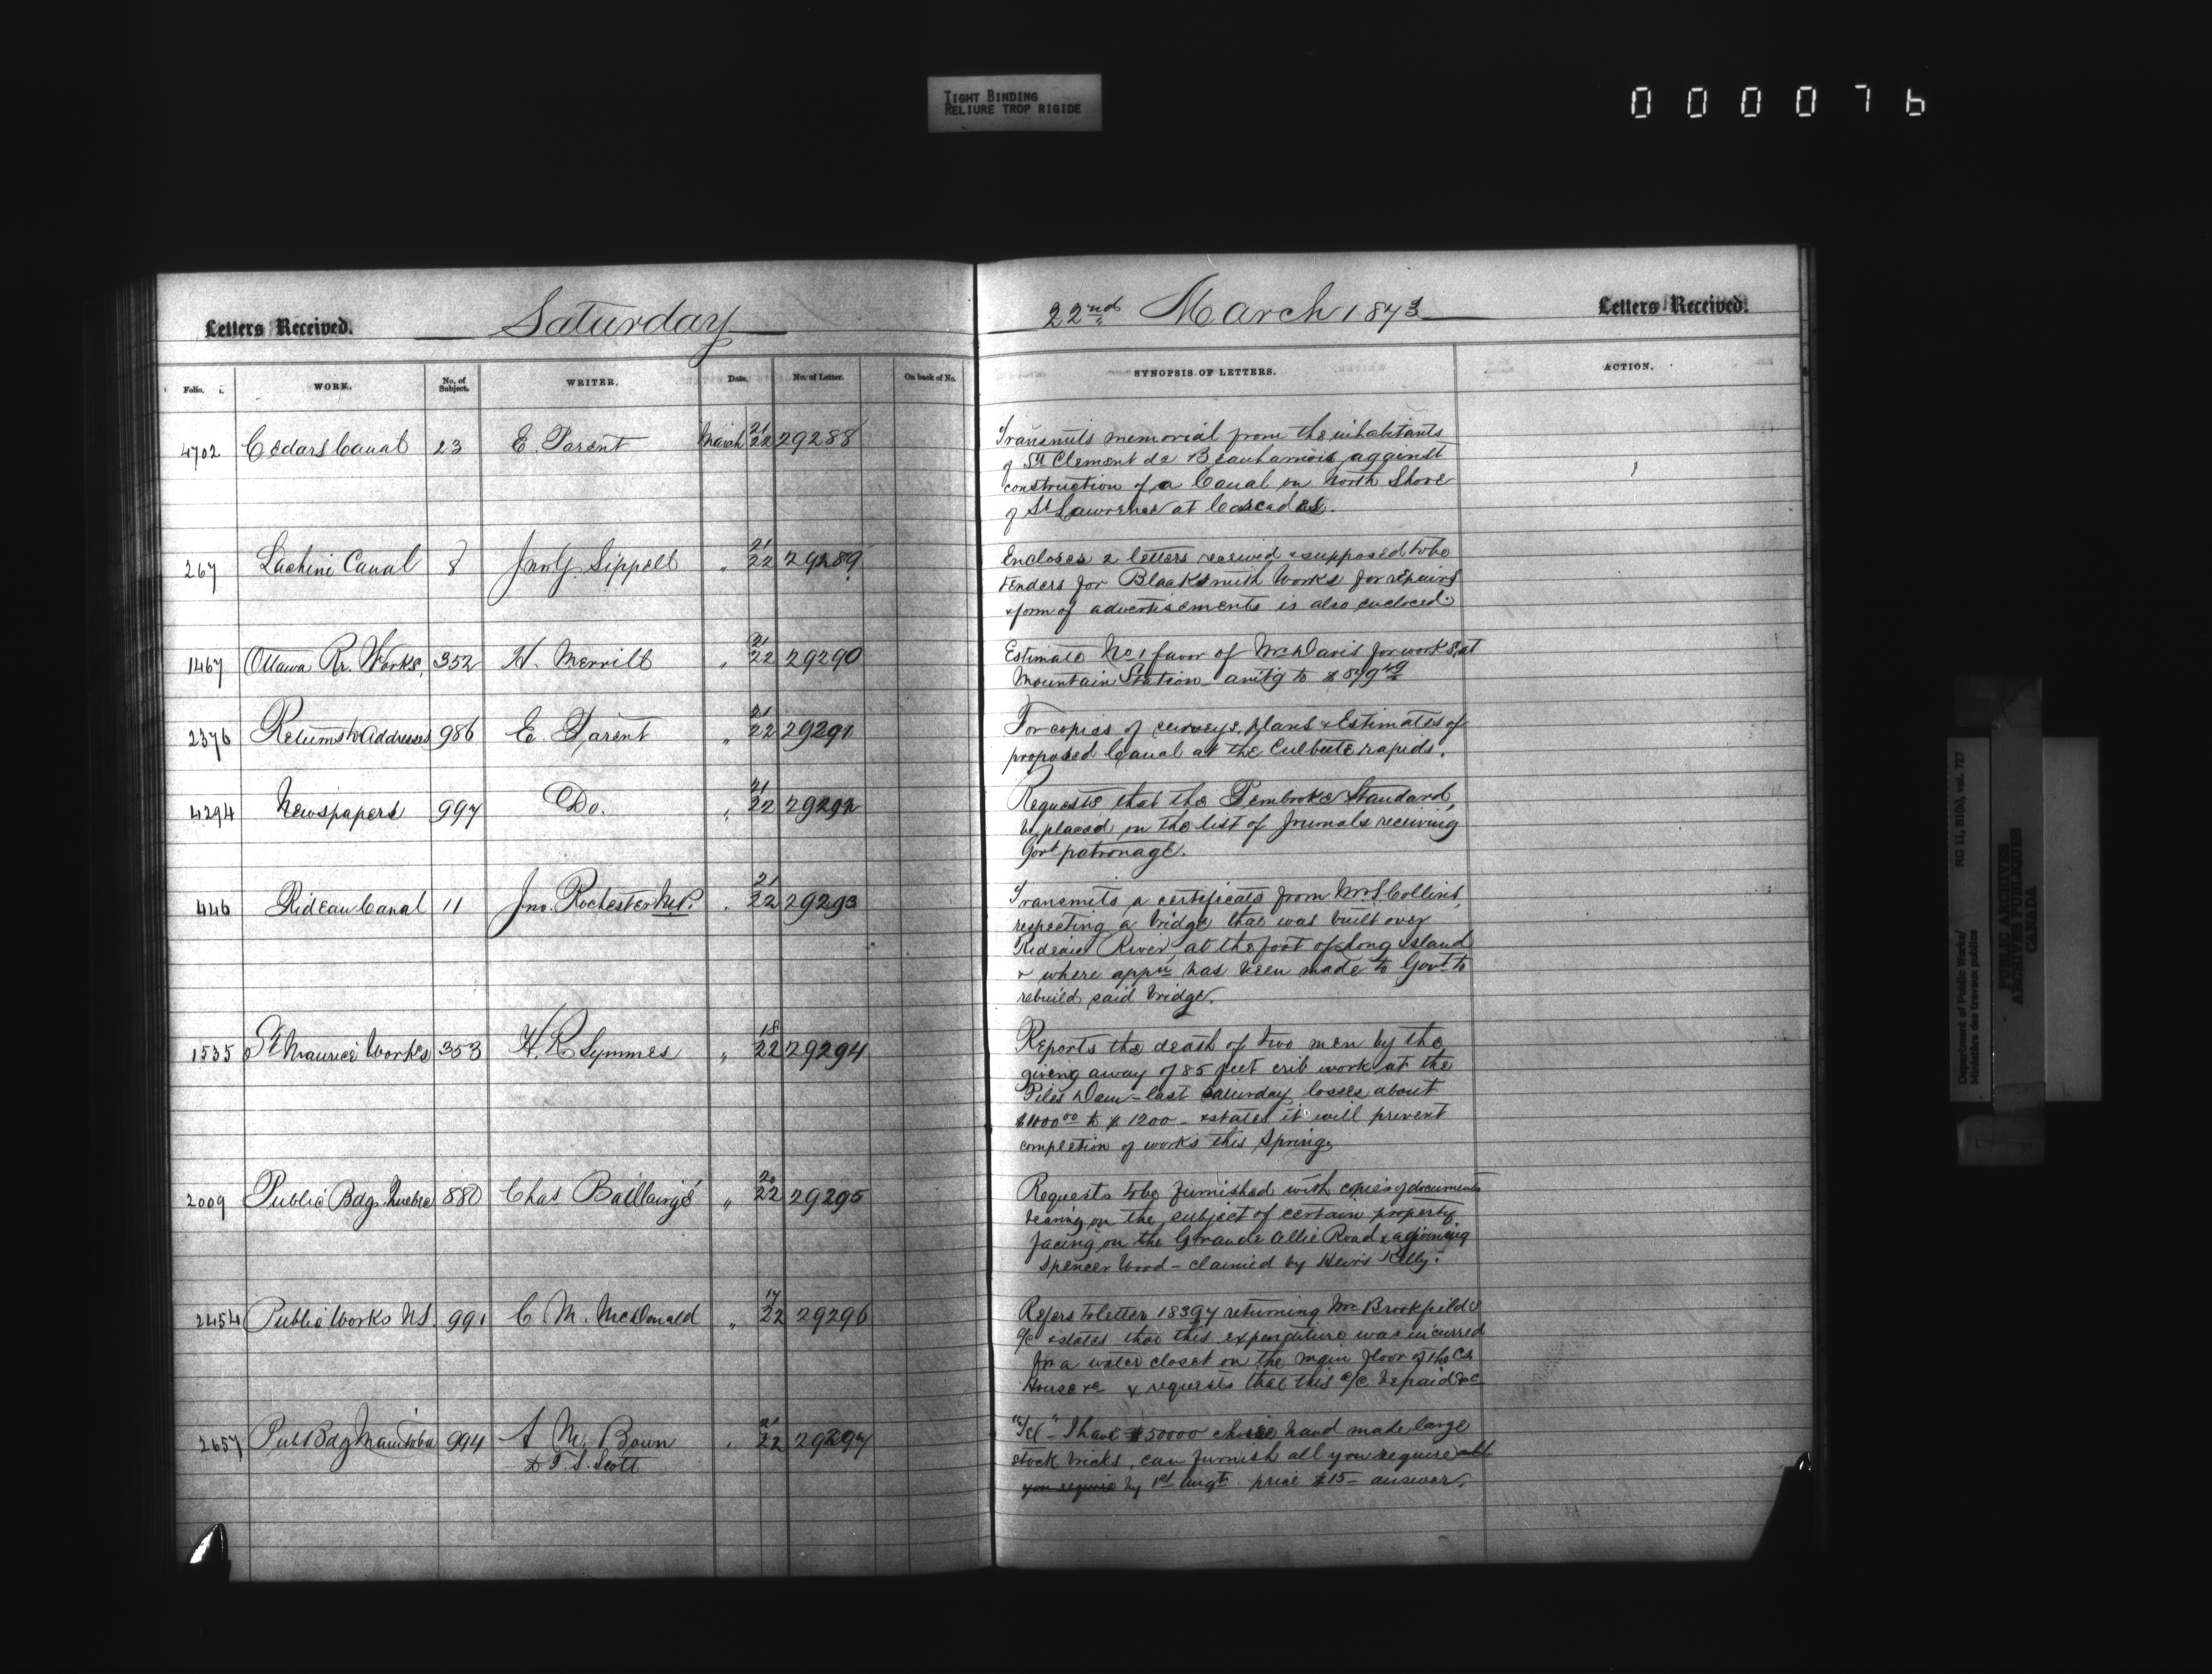 TIGHT BINDING
RELIURE TROP RIGIDE
0 0 0 0 7 6
Letters Received. Saturday 22nd March 1873 Letters Received.
Folio. WORK. No. of Subject. WRITER. Date. No. of Letter. On back of No. SYNOPSIS OF LETTERS. ACTION.
4702 Cedars Canal 23 E. Parent March 21/22 29288
Transmits memorial from the inhabitants
of St Clement de Beauharnois against
construction of a Canal on North Shore
of St Lawrence at Cascades.
267 Lachine Canal 8 Jno G. Sippell " 21/22 29289
Encloses 2 letters received & supposed to be
tenders for Blacksmith Works for repairs
& form of advertisements is also enclosed.
1467 Ottawa Rr. Works, 352 H. Merrill " 21/22 29290
Estimate No 1 favor of Mr Davis for works at
Mountain Station - amtg to $ 879 49
2376 Returns to Addresses 986 E. Parent " 21/22 29291
For copies of surveys, plans & Estimates of
proposed Canal at the Culbute rapids.
4294 Newspapers 997 Do. " 21/22 29292
Requests that the Pembroke Standard,
be placed on the list of Journals receiving
Govt patronage.
446 Rideau Canal 11 Jno. Rochester M.P. " 21/22 29293
Transmits a certificate from Mr S. Collins,
respecting a bridge that was built over
Rideau River, at the foot of Long Island
& where appn has been made to Govt to
rebuild said bridge.
1535 St Maurice Works 353 H. R. Symmes " 18/22 29294
Reports the death of two men by the
giving away of 85 feet crib work at the
Piles Dam - last Saturday losses about
$1000 00 to $ 1200 - & states it will prevent
completion of works this Spring
2009 Public Bdgs. Quebec 880 Chas Baillairgé " 20/22 29295
Requests to be furnished with copies of documents
bearing on the subject of certain property
facing on the Grande Allie Road & adjoining
Spencer Wood - claimed by Heirs Kelly.
2454 Public Works NS. 991 C. M. McDonald " 17/22 29296
Refers to letter 18397 returning Mr Brookfields
a/c & states that this expenditure was incurred
for a water closet on the main floor of the Cs
House &c & requests that this a/c be paid &c
2657 Pub Bdg Manitoba 994 A. M. Bown " 21/22 29297
& T. S. Scott
"Tel" - I have $50000 choice hand made large
stock bricks, can furnish all you require all
you require by 1st Augt. price $15 - answer.
Department of Public Works/
Ministère des travaux publics
RG 11, B1(b), vol. 727
PUBLIC ARCHIVES
ARCHIVES PUBLIQUES
CANADA